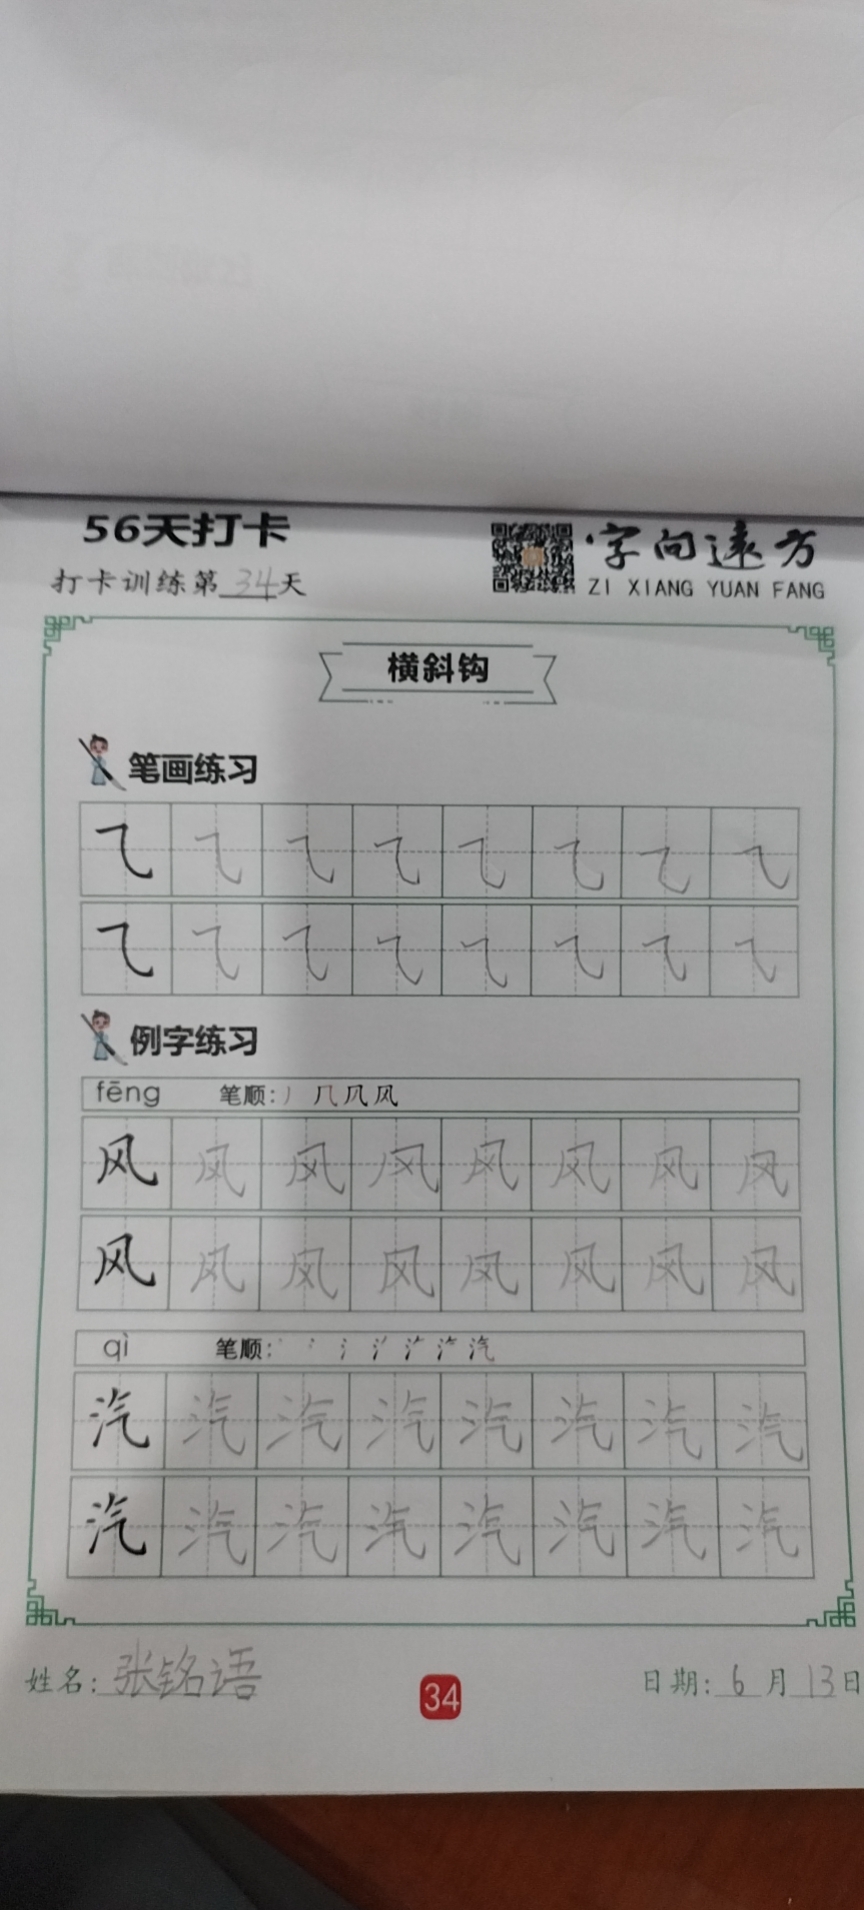 56天打卡
字向远方
打卡训练第34天
ZI XIANG YUAN FANG
横斜钩
笔画练习
⺄ ⺄ ⺄ ⺄ ⺄ ⺄ ⺄ ⺄
⺄ ⺄ ⺄ ⺄ ⺄ ⺄ ⺄ ⺄
例字练习
fēng 笔顺:丿 几 凡 风
风 风 风 风 风 风 风 风
风 风 风 风 风 风 风 风
qì 笔顺:
汽 汽 汽 汽 汽 汽 汽 汽
汽 汽 汽 汽 汽 汽 汽 汽
姓名:张铭语
34
日期:6月13日